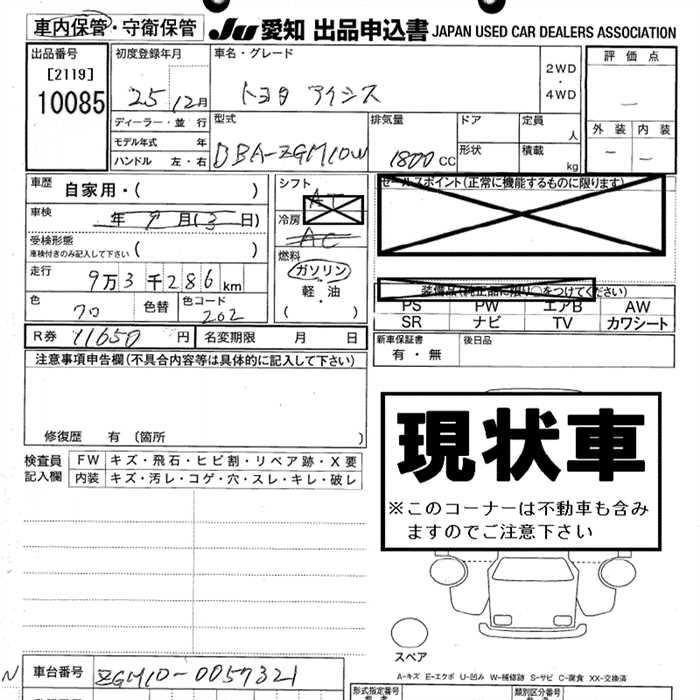 車内保管・守衛保管 JU 愛知 出品申込書 JAPAN USED CAR DEALERS ASSOCIATION
出品番号 初度登録年月 車名・グレード 2WD・4WD 評価点
[2119] 25 12月 トヨタ アイシス
10085 ディーラー・並行 型式 排気量 ドア 定員 人 外装 内装
モデル年式 年 DBA-ZGM10W 1800 CC 形状 積載 kg
ハンドル 左・右
車歴 自家用・( ) シフト AT セールスポイント(正常に機能するものに限ります)
車検 年 9月(3日) 冷房 AC
受検形態 車検付きのみ記入して下さい ( ) 燃料
走行 9万3千286km ガソリン 装備品(純正品に限り○をつけてください)
色 クロ 色替 色コード 202 軽・油 ( ) PS PW エアB AW
SR ナビ TV カワシート
R券 11650 円 名変期限 月 日 新車保証書 有・無 後日品
注意事項申告欄(不具合内容等は具体的に記入して下さい)
修復歴 有 (箇所 )
現状車
※このコーナーは不動車も含み
ますのでご注意下さい
検査員記入欄 FW キズ・飛石・ヒビ割・リペア跡・X要
内装 キズ・汚レ・コゲ・穴・スレ・キレ・破レ
スペア
A-キズ E-エクボ U-凹み W-補修跡 S-サビ C-腐食 XX-交換済
N 車台番号 ZGM10-0057321 形式指定番号 類別区分番号